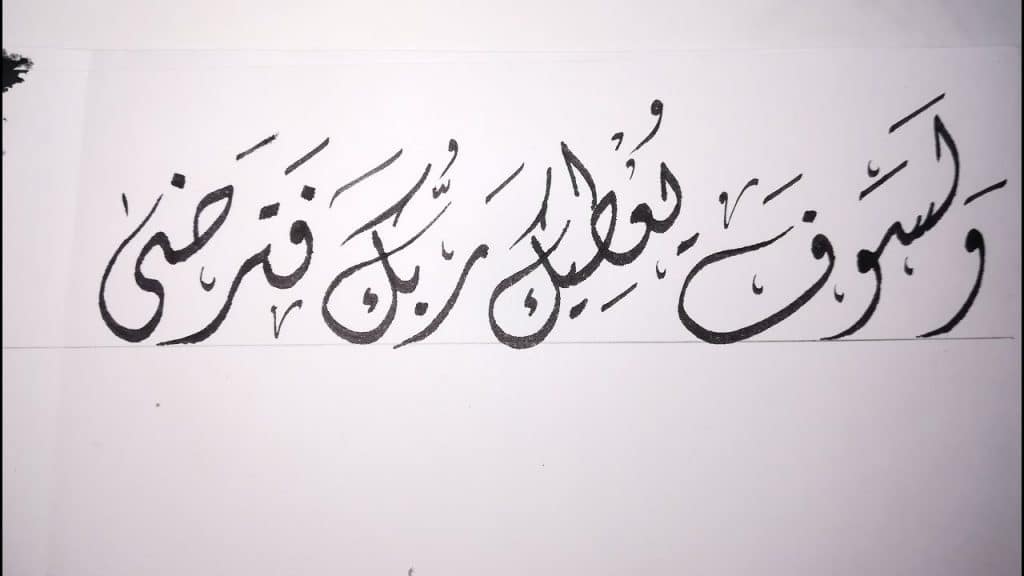 وَلَسَوْفَ يُعْطِيكَ رَبُّكَ فَتَرْضَىٰ